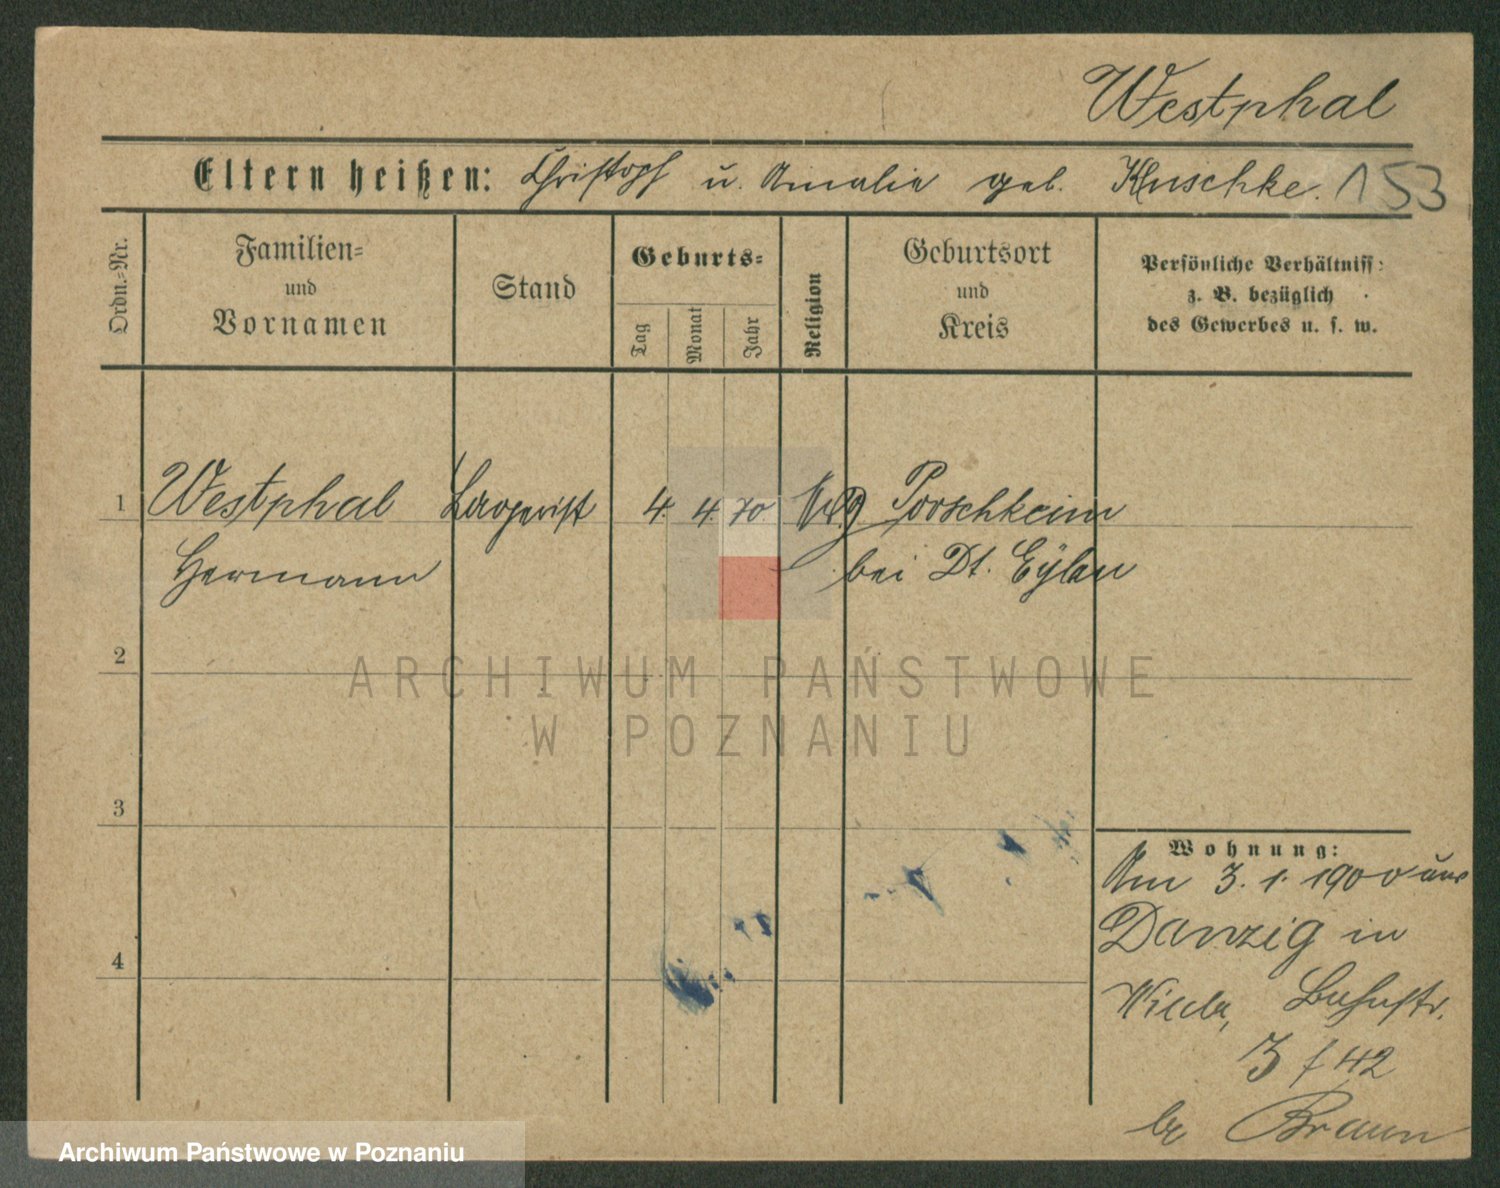 Westphal
Eltern heißen: Christoph u. Amalie geb. Kluschke. 153
Ordn.-Nr.
Familien-
und
Vornamen
Stand
Geburts-
Tag
Monat
Jahr
Religion
Geburtsort
und
Kreis
Persönliche Verhältniss:
z. B. bezüglich
des Gewerbes u. s. w.
1 Westphal Lagerist 4. 4. 70 Porschkeim
Hermann bei Dt. Eylau
2
ARCHIWUM PAŃSTWOWE
W POZNANIU
3
Wohnung:
Am 3. 1. 1900 aus
4 Danzig in
Wilda, Bahnstr.
3 / 42
b/ Braun
Archiwum Państwowe w Poznaniu